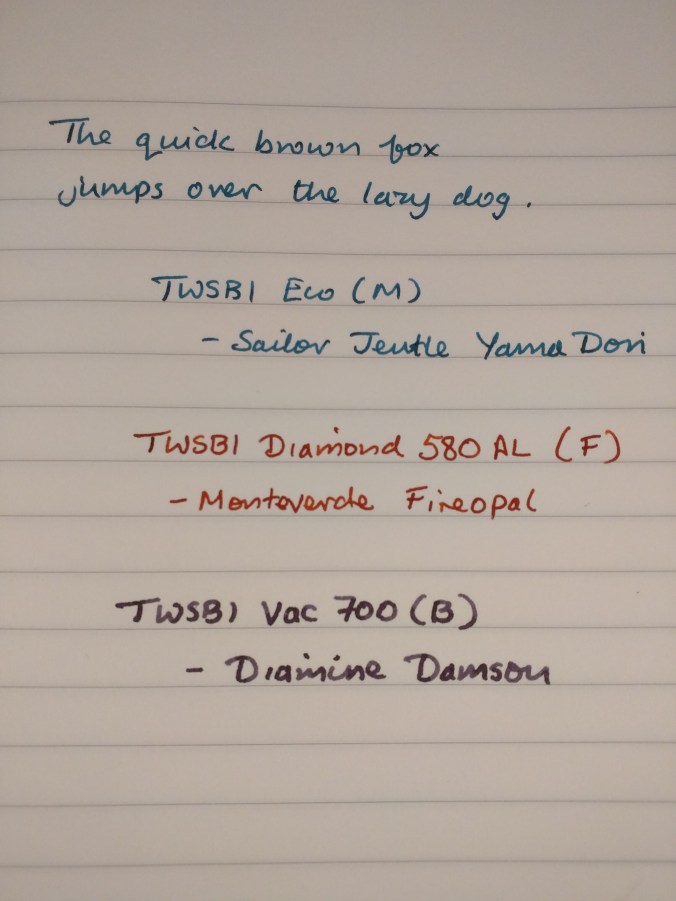 The quick brown fox
jumps over the lazy dog.
TWSBI Eco (M)
- Sailor Jentle Yama Dori
TWSBI Diamond 580 AL (F)
- Monteverde Fireopal
TWSBI Vac 700 (B)
- Diamine Damson